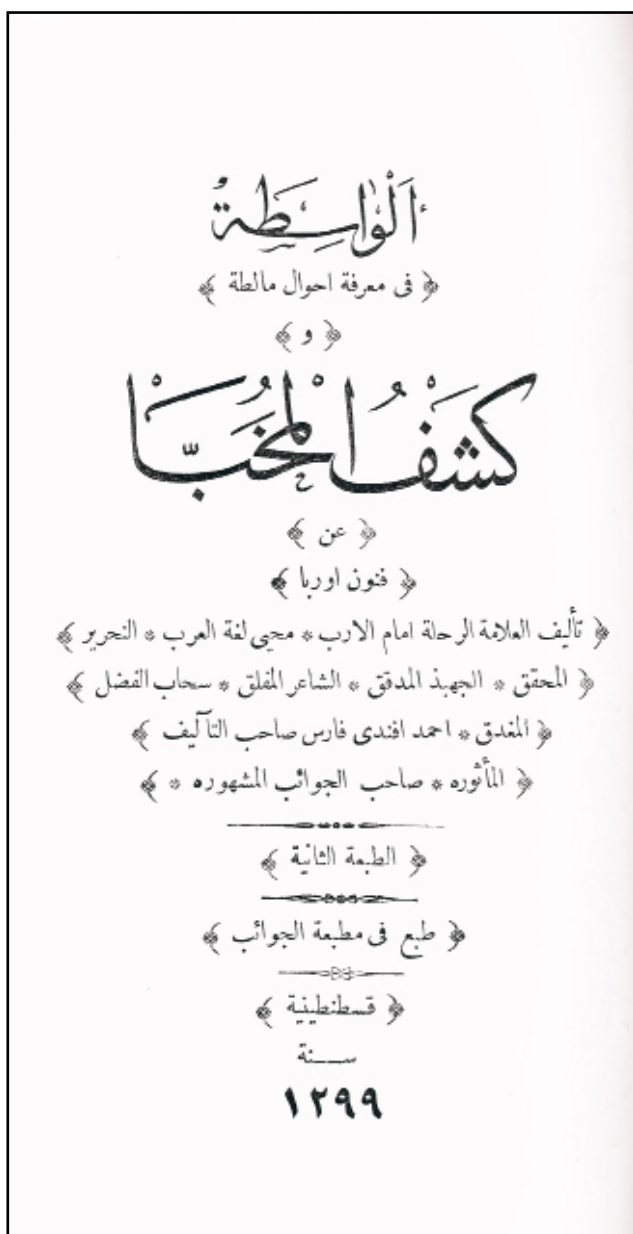 اَلْوٰاسِطَةُ
﴿ فى معرفة احوال مالطة ﴾
﴿ و ﴾
كَشْفُ الْمُخَبَّا
﴿ عن ﴾
﴿ فنون اوربا ﴾
﴿ تأليف العلامة الرحلة امام الارب * محيى لغة العرب * النحرير ﴾
﴿ المحقق * الجهبذ المدقق * الشاعر المفلق * سحاب الفضل ﴾
﴿ المغدق * احمد افندى فارس صاحب التآليف ﴾
﴿ المأثوره * صاحب الجوائب المشهوره * ﴾
﴿ الطبعة الثانية ﴾
﴿ طبع فى مطبعة الجوائب ﴾
﴿ قسطنطينية ﴾
ســنة
١٢٩٩